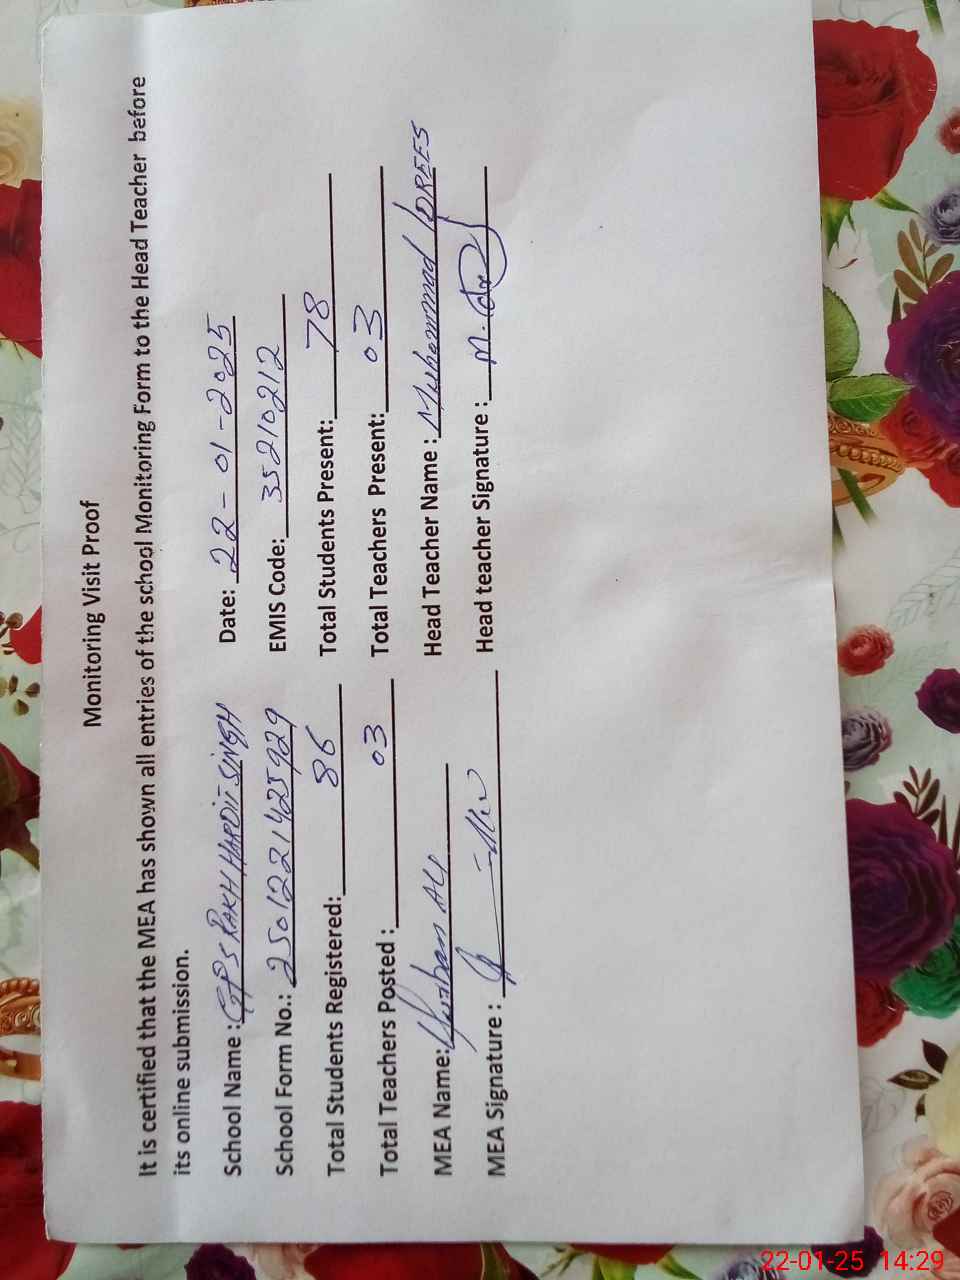 Monitoring Visit Proof
It is certified that the MEA has shown all entries of the school Monitoring Form to the Head Teacher before
its online submission.
School Name : GPS RAKH HARDIT SINGH Date: 22-01-2025
School Form No.: 2501221425929 EMIS Code: 35210212
Total Students Registered: 86 Total Students Present: 78
Total Teachers Posted : 03 Total Teachers Present: 03
MEA Name: Ali Head Teacher Name : Muhammad IDREES
MEA Signature : Head teacher Signature :
22-01-25 14:29